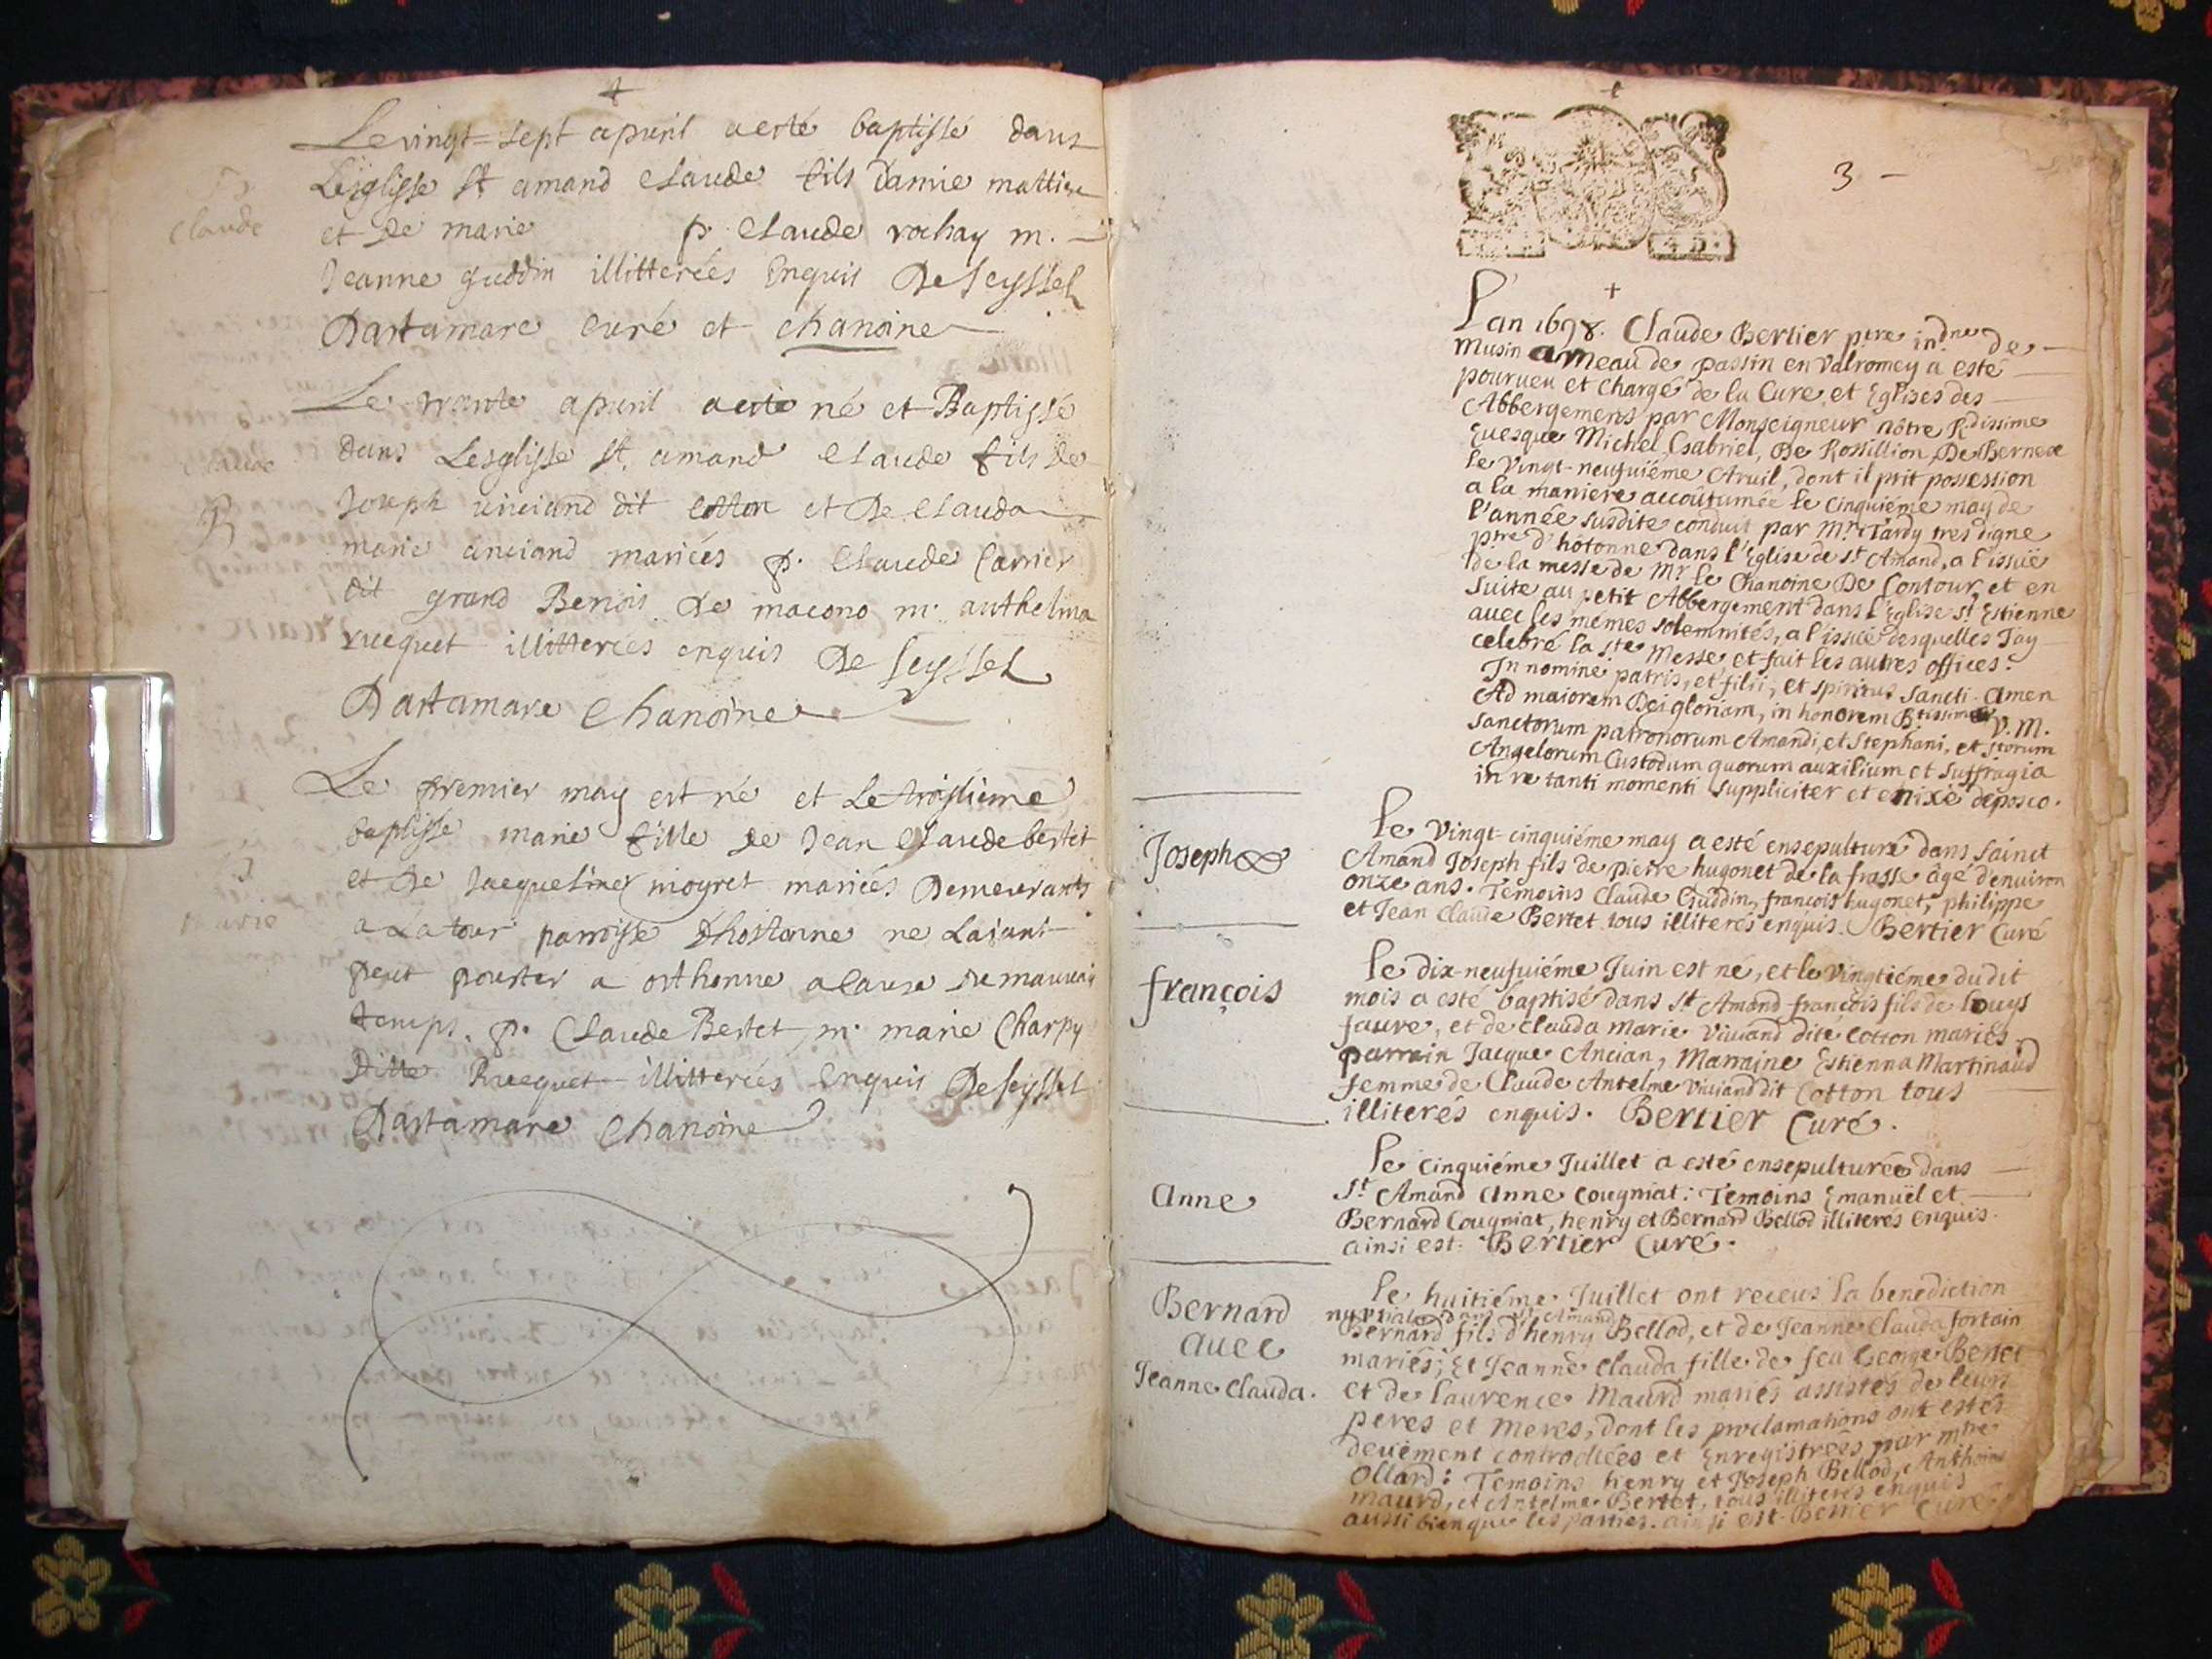 Le vingt=sept apuril a esté baptissé dans
Lesglisse st amand Claude fils Danne
Claude
et de marie p. Claude rochay m. —
Jeanne guddin illitterées Enquis De seyssel
Dartamare Curé et chanoine
Le trante apuril a esté né et Baptissé
Claude
dans Lesglisse st. amand Claude fils de
Joseph viuiand dit cotton et De Clauda
marie anciand mariées p. Claude Carrier
dit grand Benois de m. anthelma
rucquet illitterées enquis De seyssel
Dartamare Chanoine
Le premier may est né et Le troissieme
baptissé marie fille de Jean Claude bertet
et De Jacqueline moyret mariées Demeurants
marie
a La tour parroisse Dhostonne ne Laiant
peut pourter a osthonne a Cause du mauuais
temps. p. Claude Bertet m. marie Charpy
Ditte Rucquet illitterées Enquis De seyssel
Dartamare Chanoine
3 —
L'an 1698. Claude Bertier ptre indne de —
Musin ameau de passin en Valromey a esté
pourueu et chargé de la Cure et Eglises des
Abbergemens par Monseigneur nôtre Rdissime
Euesque Michel Gabriel, De Rossillion De Bernex
le Vingt-neufuiéme Auril, dont il prit possession
a la maniere accoûtumée le cinquiéme may de
l'année susdite conduit par Mr. Tardy tres digne
ptre d'hôtonne dans l'Eglise de st Amand, a l'issüe
de la messe de Mr. le Chanoine De Contour, et en
suite au petit Abbergement dans l'Eglise st Estienne
auec les mêmes solemnités, a l'issüe desquelles J'ay
celebré la ste. Messe, et fait les autres offices.
In nomine patris, et filii, et spiritus sancti. Amen
Ad maiorem Dei gloriam, in honorem V. M.
sanctorum patronorum Amandi, et Stephani, et storum
Angelorum Custodum quorum auxilium et suffragia
in re tanti momenti suppliciter et enixè deposco.
Le Vingt-cinquiéme may a esté ensepulturé dans sainct
Joseph
Amand Joseph fils de pierre hugonet de la frasse âgé d'enuiron
onze ans. Temoins Claude Guddin, françois hugonet, philippe
et Jean Claude Bertet tous illiterés enquis. Bertier Curé
le dix-neufuiéme Juin est né, et le vingtiéme du dit
françois
mois a esté baptisé dans st Amand françois fils de louys
faure, et de clauda marie viuiand dite cotton mariés.
parrain Jacque Ancian, Marraine Estienna Martinaud
femme de Claude Antelme viuiand dit Cotton tous
illiterés enquis. Bertier Curé.
le cinquiéme Juillet a esté ensepulturée dans —
Anne
st Amand Anne cougniat: Temoins Emanuël et —
Bernard Cougniat, henry et Bernard Bellod illiterés enquis.
ainsi est. Bertier Curé.
le huitiéme Juillet ont receus la benediction
Bernard
auec
Jeanne Clauda.
nuptiale dans st Amand
Bernard fils d'henry Bellod, et de Jeanne Clauda fortain
mariés; Et Jeanne clauda fille de feu George Bertet
et de laurence Maurd mariés assistés de leurs
peres et meres, dont les proclamations ont estés
deuëment controllées et Enregistrées par mtre
Ollard: Temoins henry et Joseph Bellod, Anthoine
maurd, et Antelme Bertet, tous illiterés enquis
aussi bien que les parties. ainsi est Bertier Curé